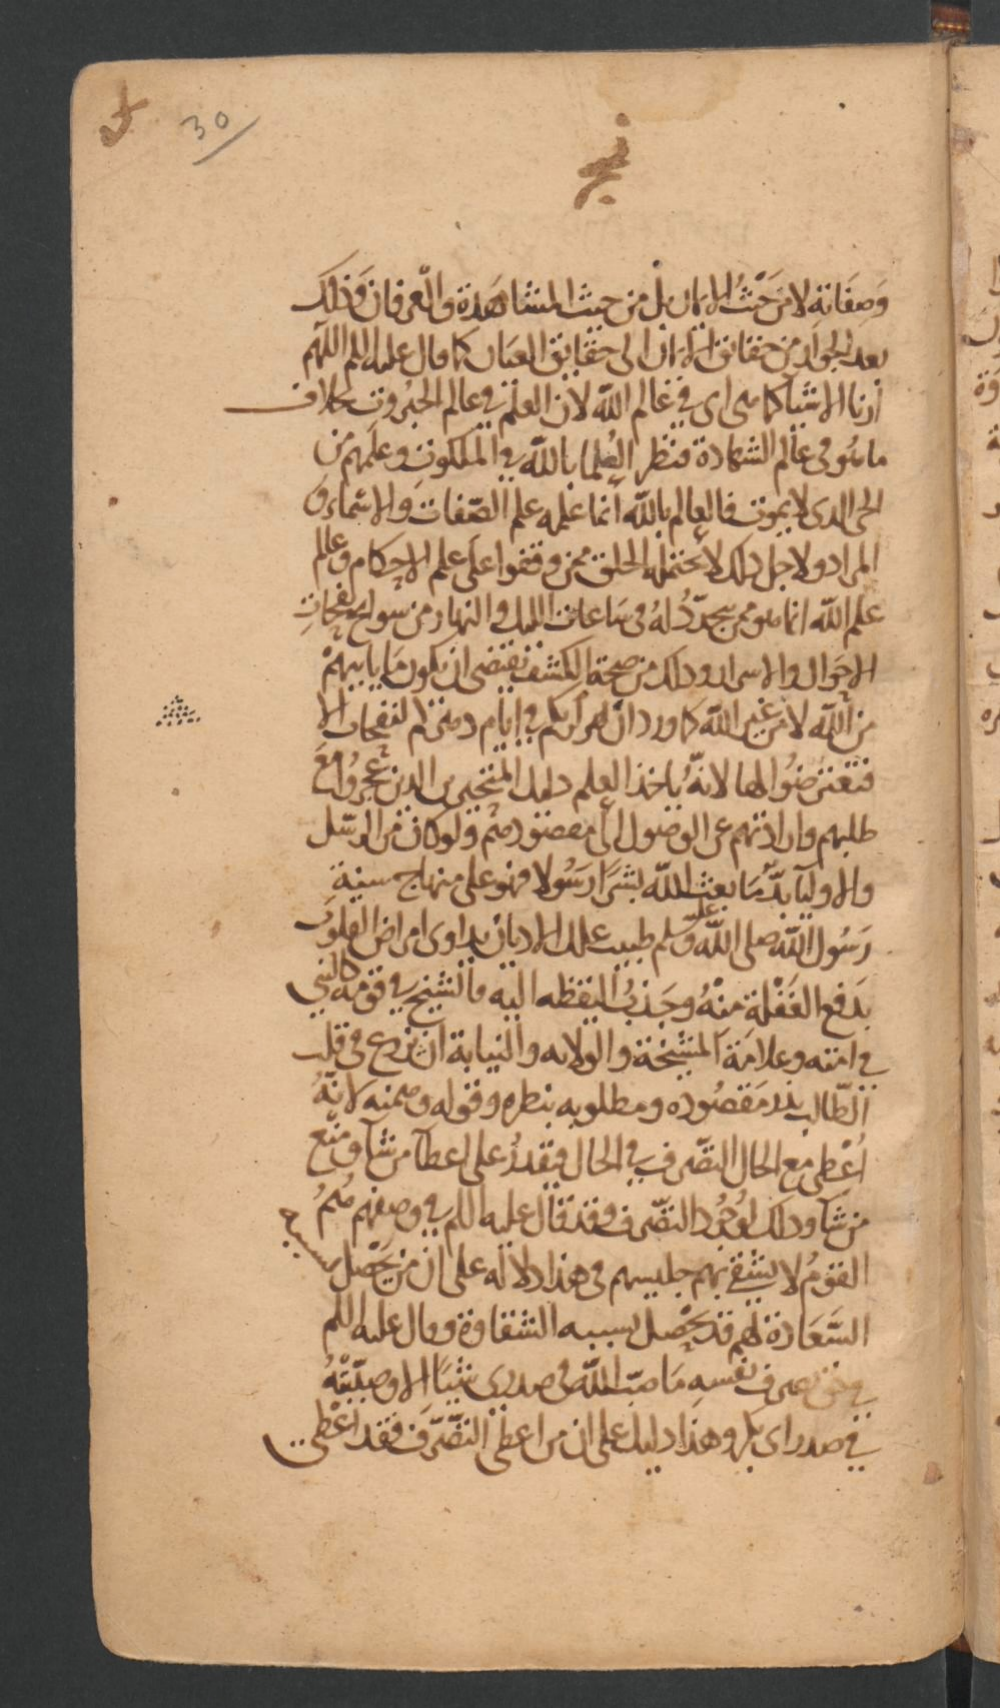 30
وصفاته لا من حيث الايمان بل من حيث المشاهدة والعرفان وذلك
بعد الجواز من حقائق الايمان الى حقايق العيان كما قال عليه السلم اللهم
ارنا الاشيآ كما هي اي في عالم الله لان العلم في عالم الجبروت بخلاف
ما هو في عالم الشهادة فنظر العلما بالله في الملكوت وعلمهم من
الحي الدى لا يموت فالعالم بالله انما علمه علم الصفات والاسماء و
المراد ولاجل ذلك لا يحتمله الخلق ممن وقفوا على علم الاحكام وعالم
علم الله انما هو من يجدد له في ساعات الليل والنهار من سوابح نفحات
الاحوال والاسرار وذلك من صحة الكشف يقتضي ان يكون ما ياتيهم
من الله لا من غير الله كما ورد ان لربكم في ايام دهركم نفحات الا
فتعرضوا لها لانه ياخذ العلم دليل المتحيرين الدين عجزوا مع
طلبهم وارادتهم عن الوصول الى مقصودهم ولو كان من الرسل
والاوليآ بد ما بعث الله بشرا رسولا فهو على منهاج سنة
رسول الله صلى الله عليه وسلم طبيب علل الاديان يداوى امراض القلوب
بدفع الغفلة منه وجذب اليقظه اليه فالشيخ في قومه كالنبي
في امته وعلامة المشيخة والولايه والنيابة ان يزرع في قلب
الطالب بذر مقصوده ومطلوبه بنظره وقوله وهمته لانه
اعطي مع الحال التصرف في الحال فيقدر على اعطآ من شآ ومنع
من شآ وذلك لوجود التصرف وقد قال عليه السلم في وصفهم هم
القوم لا يشقى بهم جليسهم في هذا دلاله على ان من يحصل بسببه
السعادة لهم قد يحصل بسببه الشقاوة وقال عليه السلم
في تصرف نفسه ما صب الله في صدري شيئا الا وصببته
في صدر ابي بكر وهذا دليل على ان من اعطي التصرف فقد اعطي